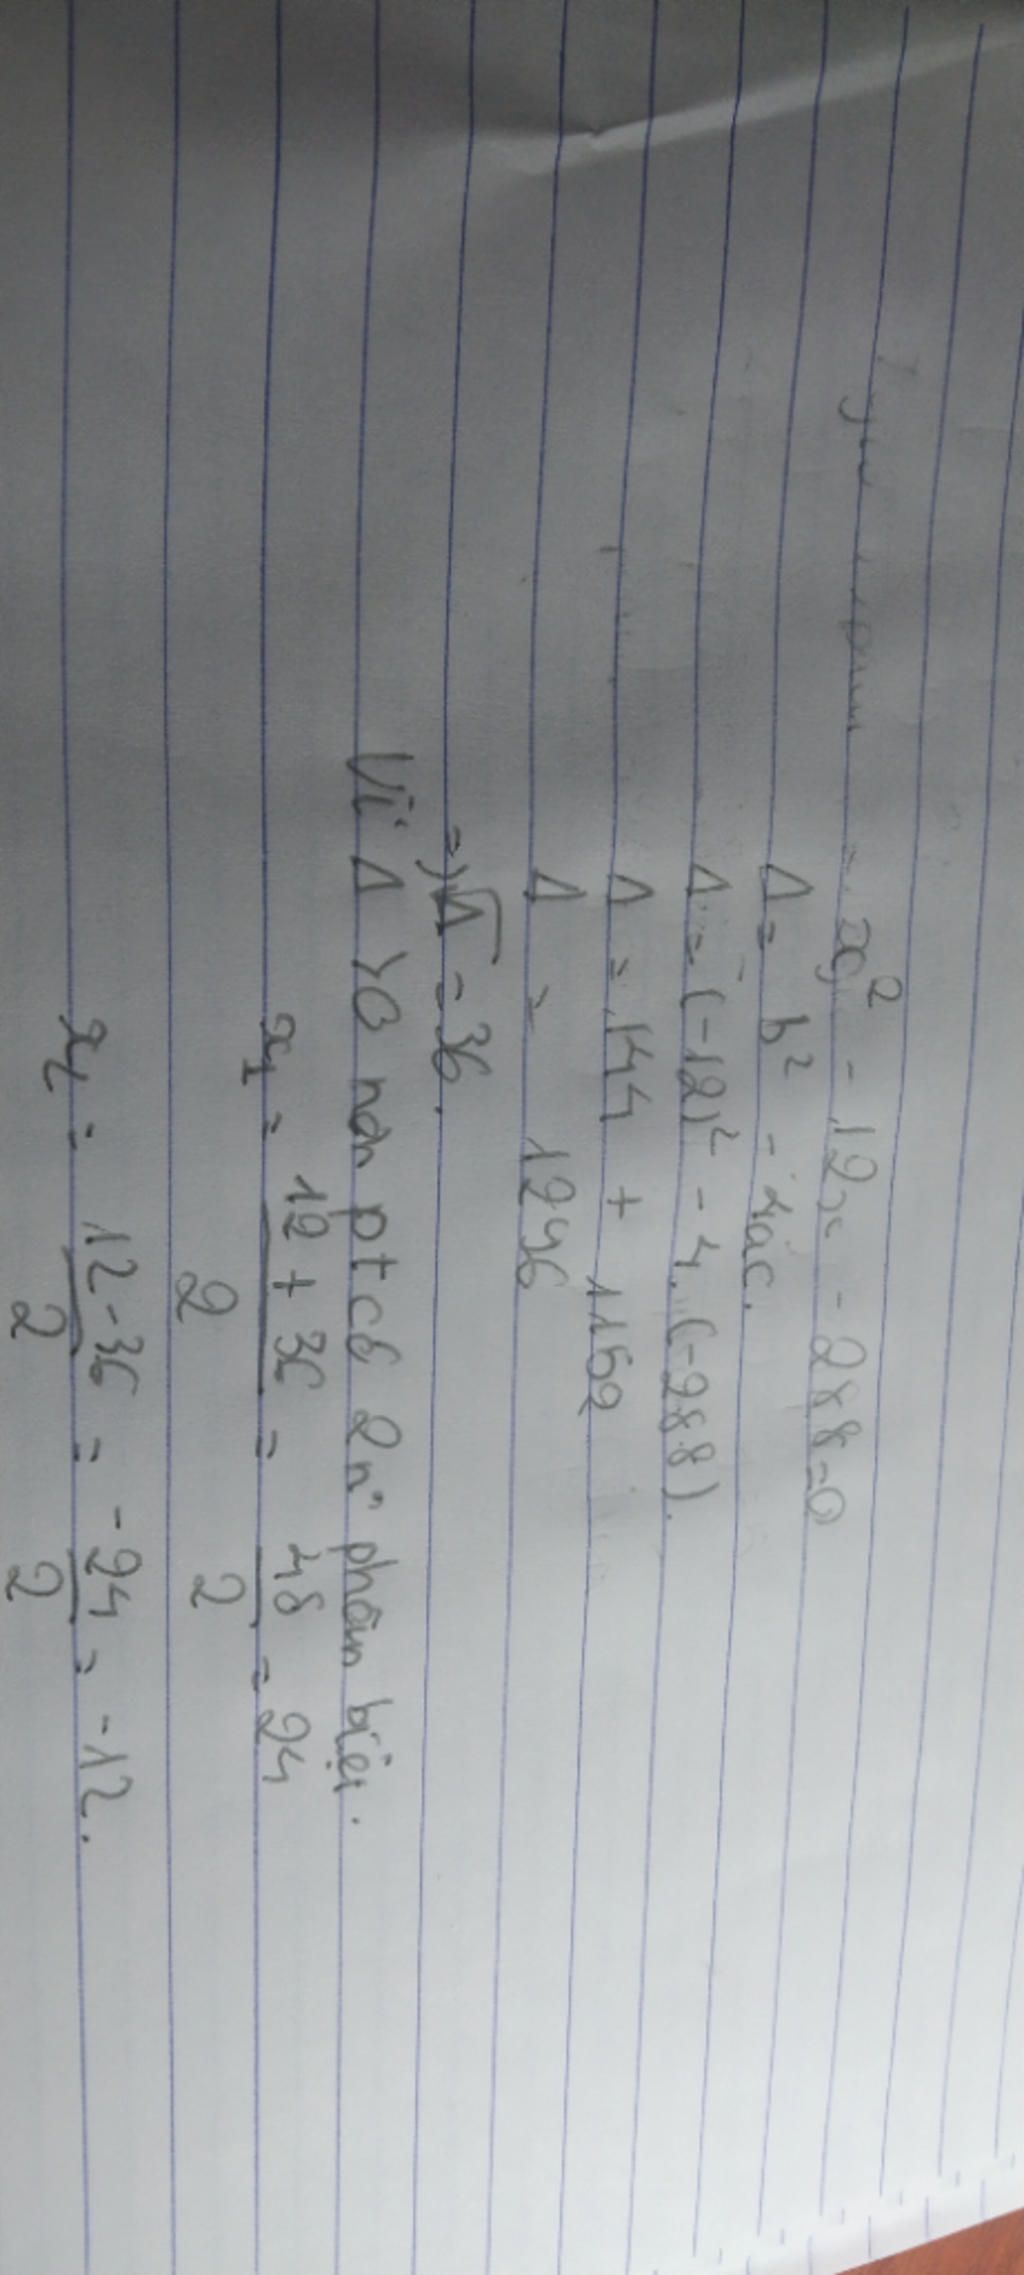 x² - 12x - 288=0
Δ = b² - 4ac.
Δ = (-12)² - 4.(-288).
Δ = 144 + 1152
Δ = 1296
=) √Δ = 36.
Vì Δ >0 nên pt có 2 n⁰ phân biệt.
x₁ = 12 + 36 / 2 = 48 / 2 = 24
x₂ = 12-36 / 2 = -24 / 2 = -12.